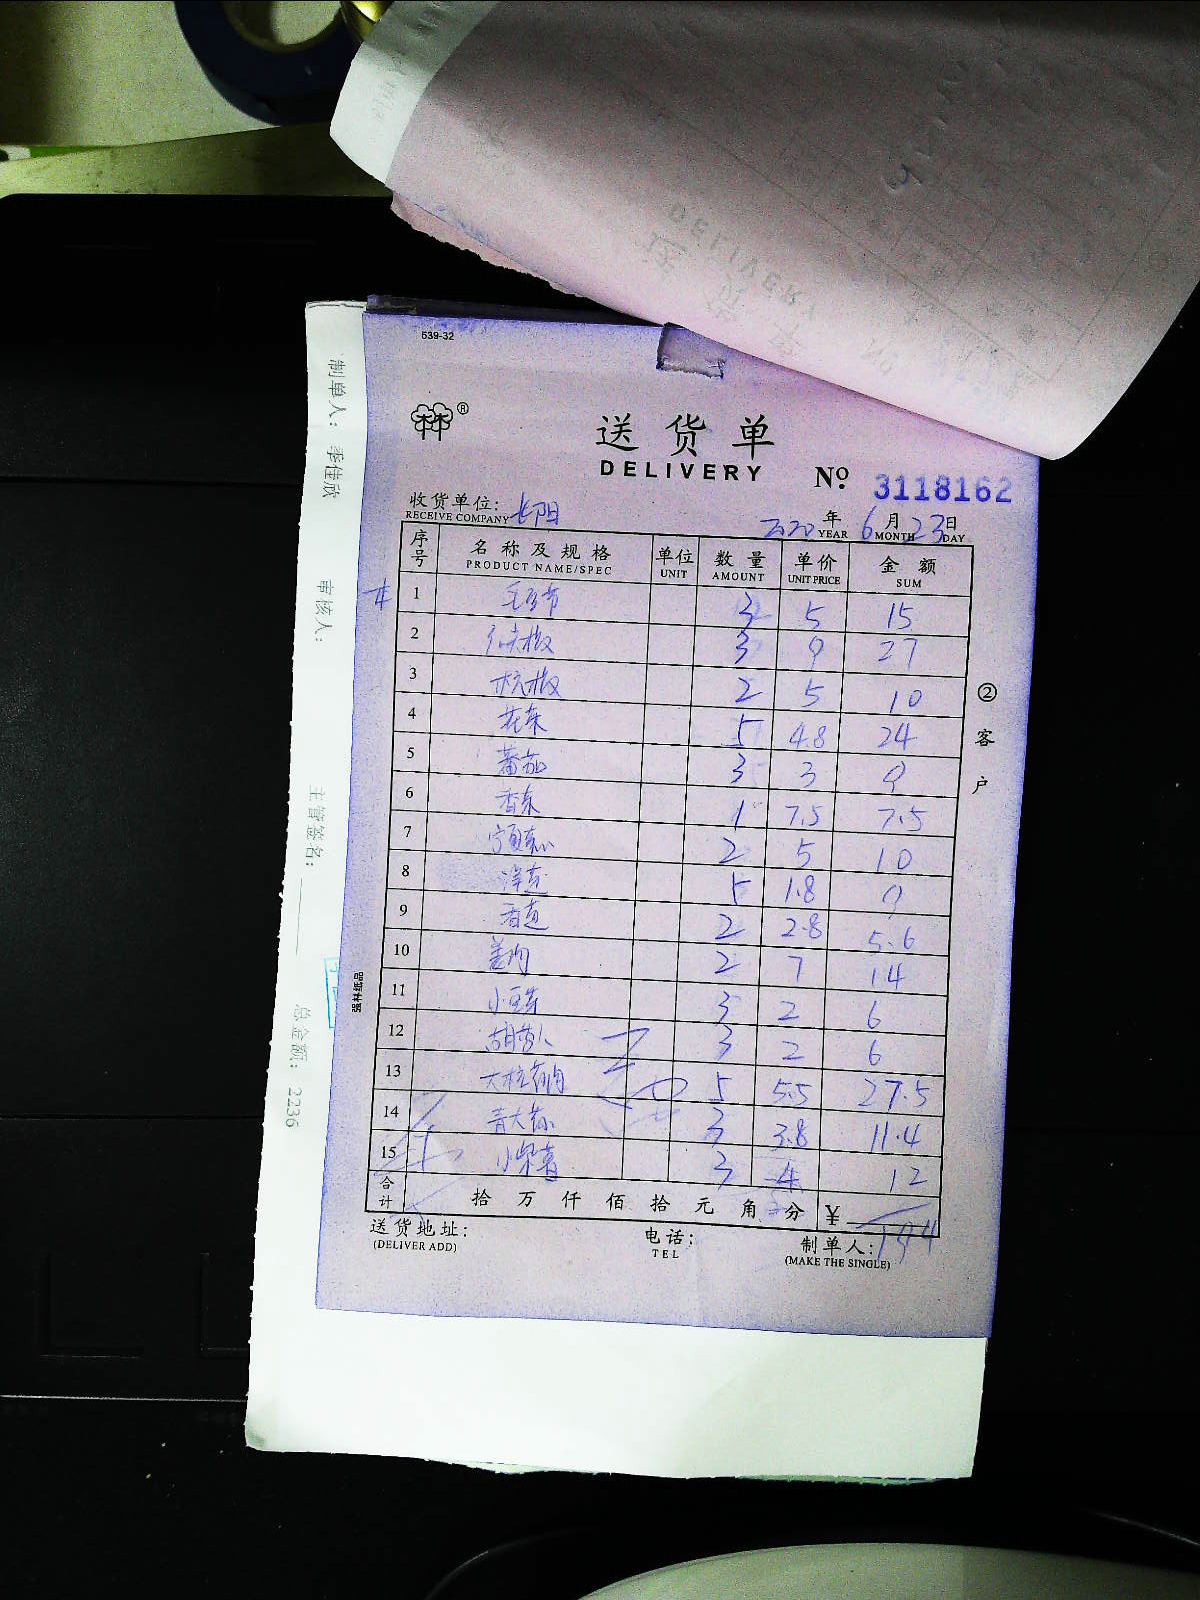 539-32
送货单
DELIVERY
№ 3118162
收货单位: 长阳
RECEIVE COMPANY
2020 年 6 月 23 日
YEAR MONTH DAY
序号 名称及规格 单位 数量 单价 金额
PRODUCT NAME/SPEC UNIT AMOUNT UNIT PRICE SUM
1 3 5 15
2 3 9 27
3 杭椒 2 5 10
4 花菜 5 4.8 24
5 蕃茄 3 3 9
6 香菜 1 7.5 7.5
7 2 5 10
8 洋葱 5 1.8 9
9 香葱 2 2.8 5.6
10 姜肉 2 7 14
11 小豆芽 3 2 6
12 胡萝卜 3 2 6
13 5 5.5 27.5
14 3 3.8 11.4
15 小翠菜 3 4 12
合计 拾 万 仟 佰 拾 元 角 分 ¥ 194
送货地址: 电话: 制单人:
(DELIVER ADD) TEL (MAKE THE SINGLE)
②客户
强林纸品
制单人: 季佳欣
审核人:
主管签名:
总金额: 2236